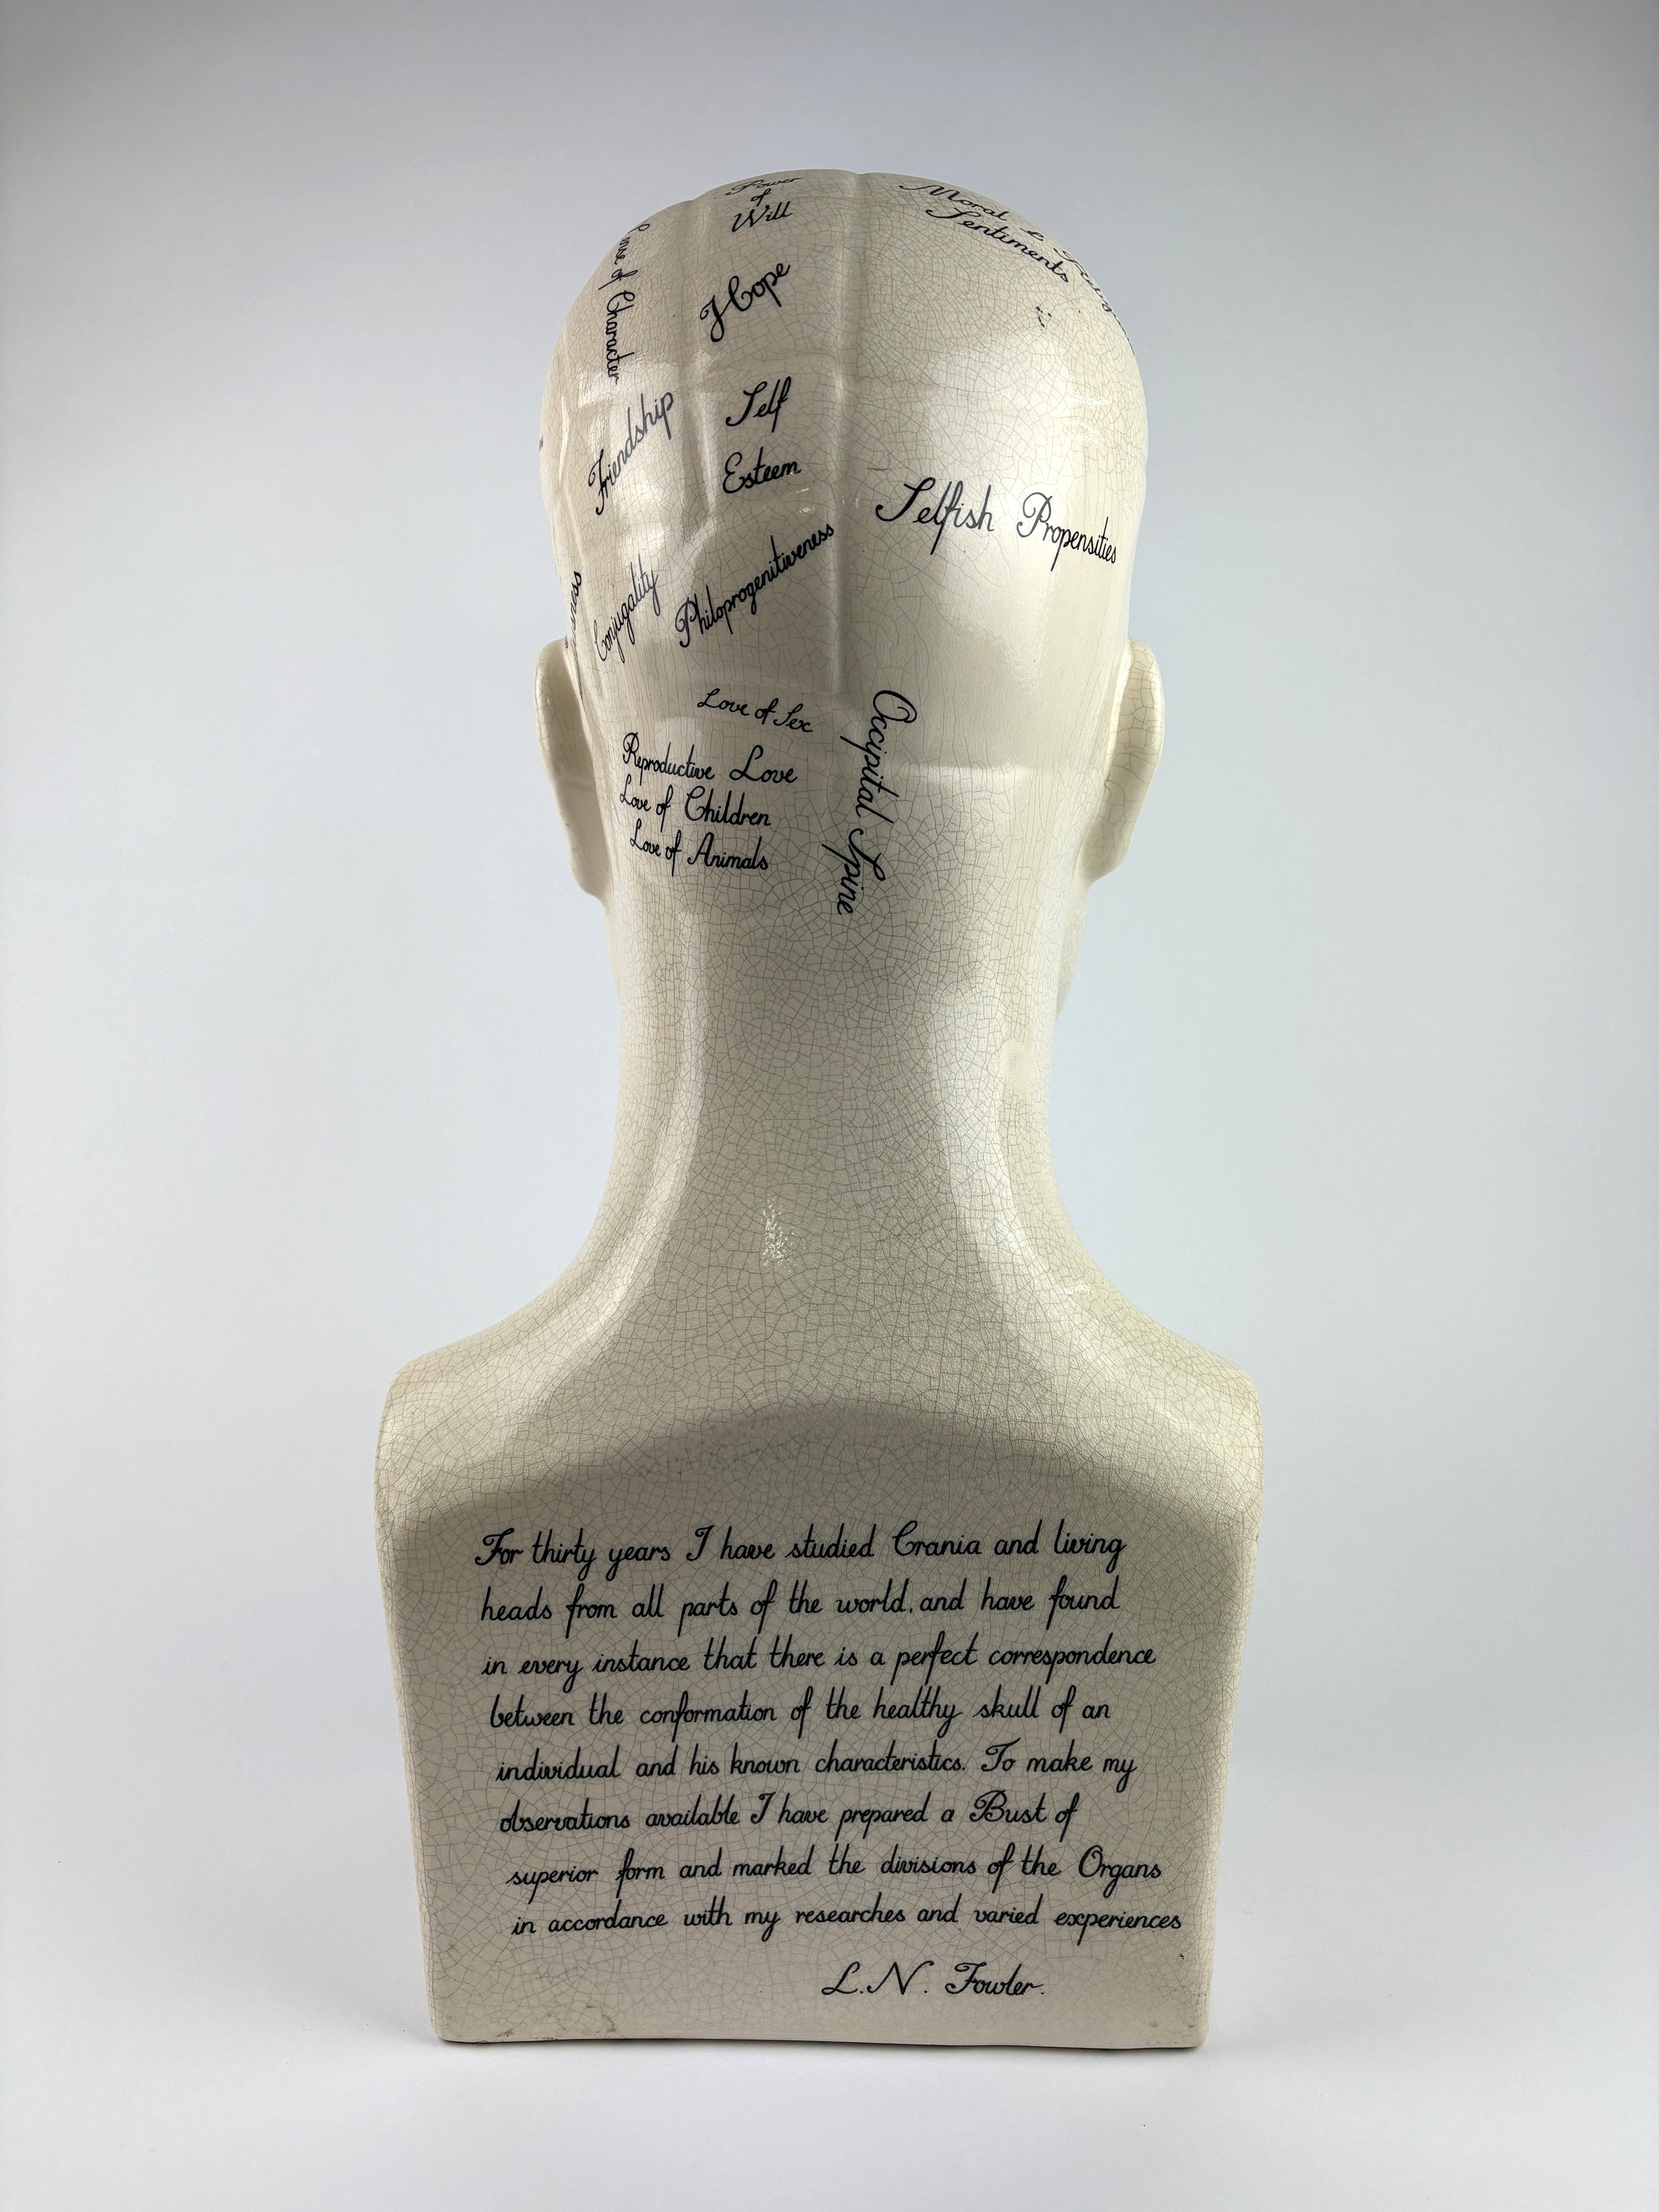 Power
of
Will
Moral &
Sentiments
of Character
Hope
Friendship
Self
Esteem
Selfish Propensities
Conjugality
Philoprogenitiveness
Love of Sex
Reproductive Love
Love of Children
Love of Animals
Occipital Spine
For thirty years I have studied Crania and living
heads from all parts of the world, and have found
in every instance that there is a perfect correspondence
between the conformation of the healthy skull of an
individual and his known characteristics. To make my
observations available I have prepared a Bust of
superior form and marked the divisions of the Organs
in accordance with my researches and varied experiences
L. N. Fowler.